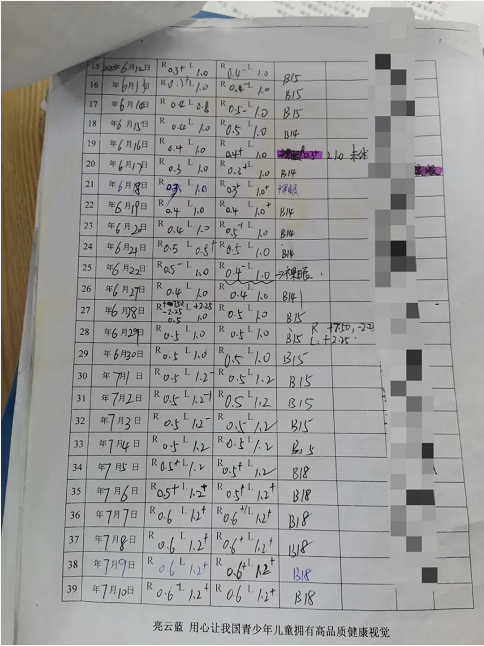 15 2020年6月12日 R 0.3+ L 1.0 0.4- L 1.0 B15
16 年6月13日 R 0.3+ L 1.0 R 0.4- L 1.0 B15
17 年6月14日 R 0.4 L 0.8 R 0.5- L 1.0 B15
18 年6月15日 R 0.4 L 1.0 R 0.5 L 1.0 B14
19 年6月16日 R 0.4 L 1.0 R 0.4+ L 1.0
20 年6月17日 R 0.3 L 1.0 R 0.3+ L 1.0 B14
21 年6月18日 R 0.3 L 1.0 R 0.3+ L 1.0+ 裸眼
22 年6月19日 R 0.4 L 1.0 R 0.4 L 1.0+ B14
23 年6月20日 R 0.4 L 1.0 R 0.5- L 1.0 B14
24 年6月21日 R 0.5 L 0.5+ R 0.5 L 1.0 B14
25 年6月22日 R 0.5- L 1.0 R 0.4- L 1.0 →裸眼.
26 年6月27日 R 0.4 L 1.0 R 0.4 L 1.0 B14
27 年6月28日 R L +2.25 -2.25 0.5 1.0 R 0.5 L 1.0 B15
28 年6月29日 R 0.5 L 1.0 R 0.5 L 1.0 B15 R +7.50, L +2.25
29 年6月30日 R 0.5 L 1.0 R 0.5 L 1.0 B15
30 年7月1日 R 0.5 L 1.2- R 0.5 L 1.2 B15
31 年7月2日 R 0.5 L 1.2- R 0.5 L 1.2 B15
32 年7月3日 R 0.5 L 1.2- R 0.5 L 1.2 B15
33 年7月4日 R 0.5 L 1.2 R 0.5 L 1.2 B15
34 年7月5日 R 0.5+ L 1.2 R 0.5+ L 1.2 B18
35 年7月6日 R 0.5+ L 1.2+ R 0.5+ L 1.2+ B18
36 年7月7日 R 0.6 L 1.2+ R 0.6+ L 1.2+ B18
37 年7月8日 R 0.6 L 1.2+ R 0.6+ L 1.2+ B18
38 年7月9日 R 0.6 L 1.2+ R 0.6+ L 1.2+ B18
39 年7月10日 R 0.6- L 1.2+ R 0.6 L 1.2+ B18
亮云蓝 用心让我国青少年儿童拥有高品质健康视觉